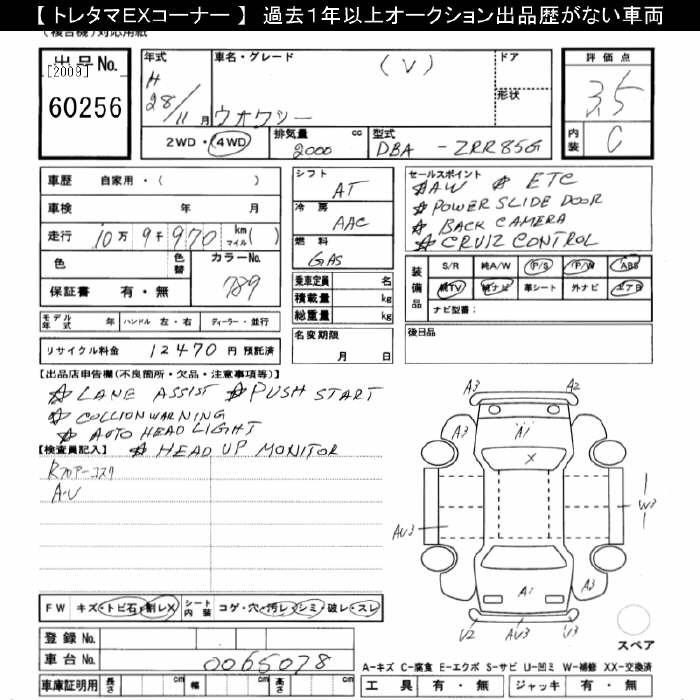 【 トレタマEXコーナー 】 過去1年以上オークション出品歴がない車両
(複合機)対応用紙
出品No.
[2009]
60256
年式 H 28/11月
車名・グレード (V)
ウオクシー
ドア
形状
2WD・4WD
排気量 cc 2000
型式 DBA - ZRR85G
評価点
3.5
内装 C
車歴 自家用・( )
車検 年 月
走行 10万9千970 km マイル( )
色 色替 カラーNo. 789
保証書 有・無
モデル年式 年 ハンドル 左・右 ディーラー・並行
リサイクル料金 12470円 預託済
シフト AT
冷房 AAC
燃料 GAS
乗車定員 名
積載量 kg
総重量 kg
名変期限 月 日
セールスポイント
☆AW ☆ ETC
☆POWER SLIDE DOOR
☆ BACK CAMERA
☆ CRUIZ CONTROL
装備品
S/R 純A/W P/S P/W ABS
純TV 純ナビ 革シート 外ナビ エアB
ナビ型番:
後日品
【出品店申告欄(不良箇所・欠品・注意事項等)】
☆ LANE ASSIST ☆ PUSH START
☆ COLLION WARNING
☆ AUTO HEAD LIGHT
【検査員記入】 ☆ HEAD UP MONITOR
Rフロアーコスク
A・U
A3 A2
A3 A1
X
AU3 W3
A1 A3
U2 AU3 U3
スペア
FW キズ・トビ石・割レX シート内装 コゲ・穴・汚レ・シミ・破レ・スレ
登録No.
車台No. 0065078
車庫証明用 長さ cm 幅 cm 高さ cm
A-キズ C-腐食 E-エクボ S-サビ U-凹ミ W-補修 XX-交換済
工具 有・無 ジャッキ 有・無